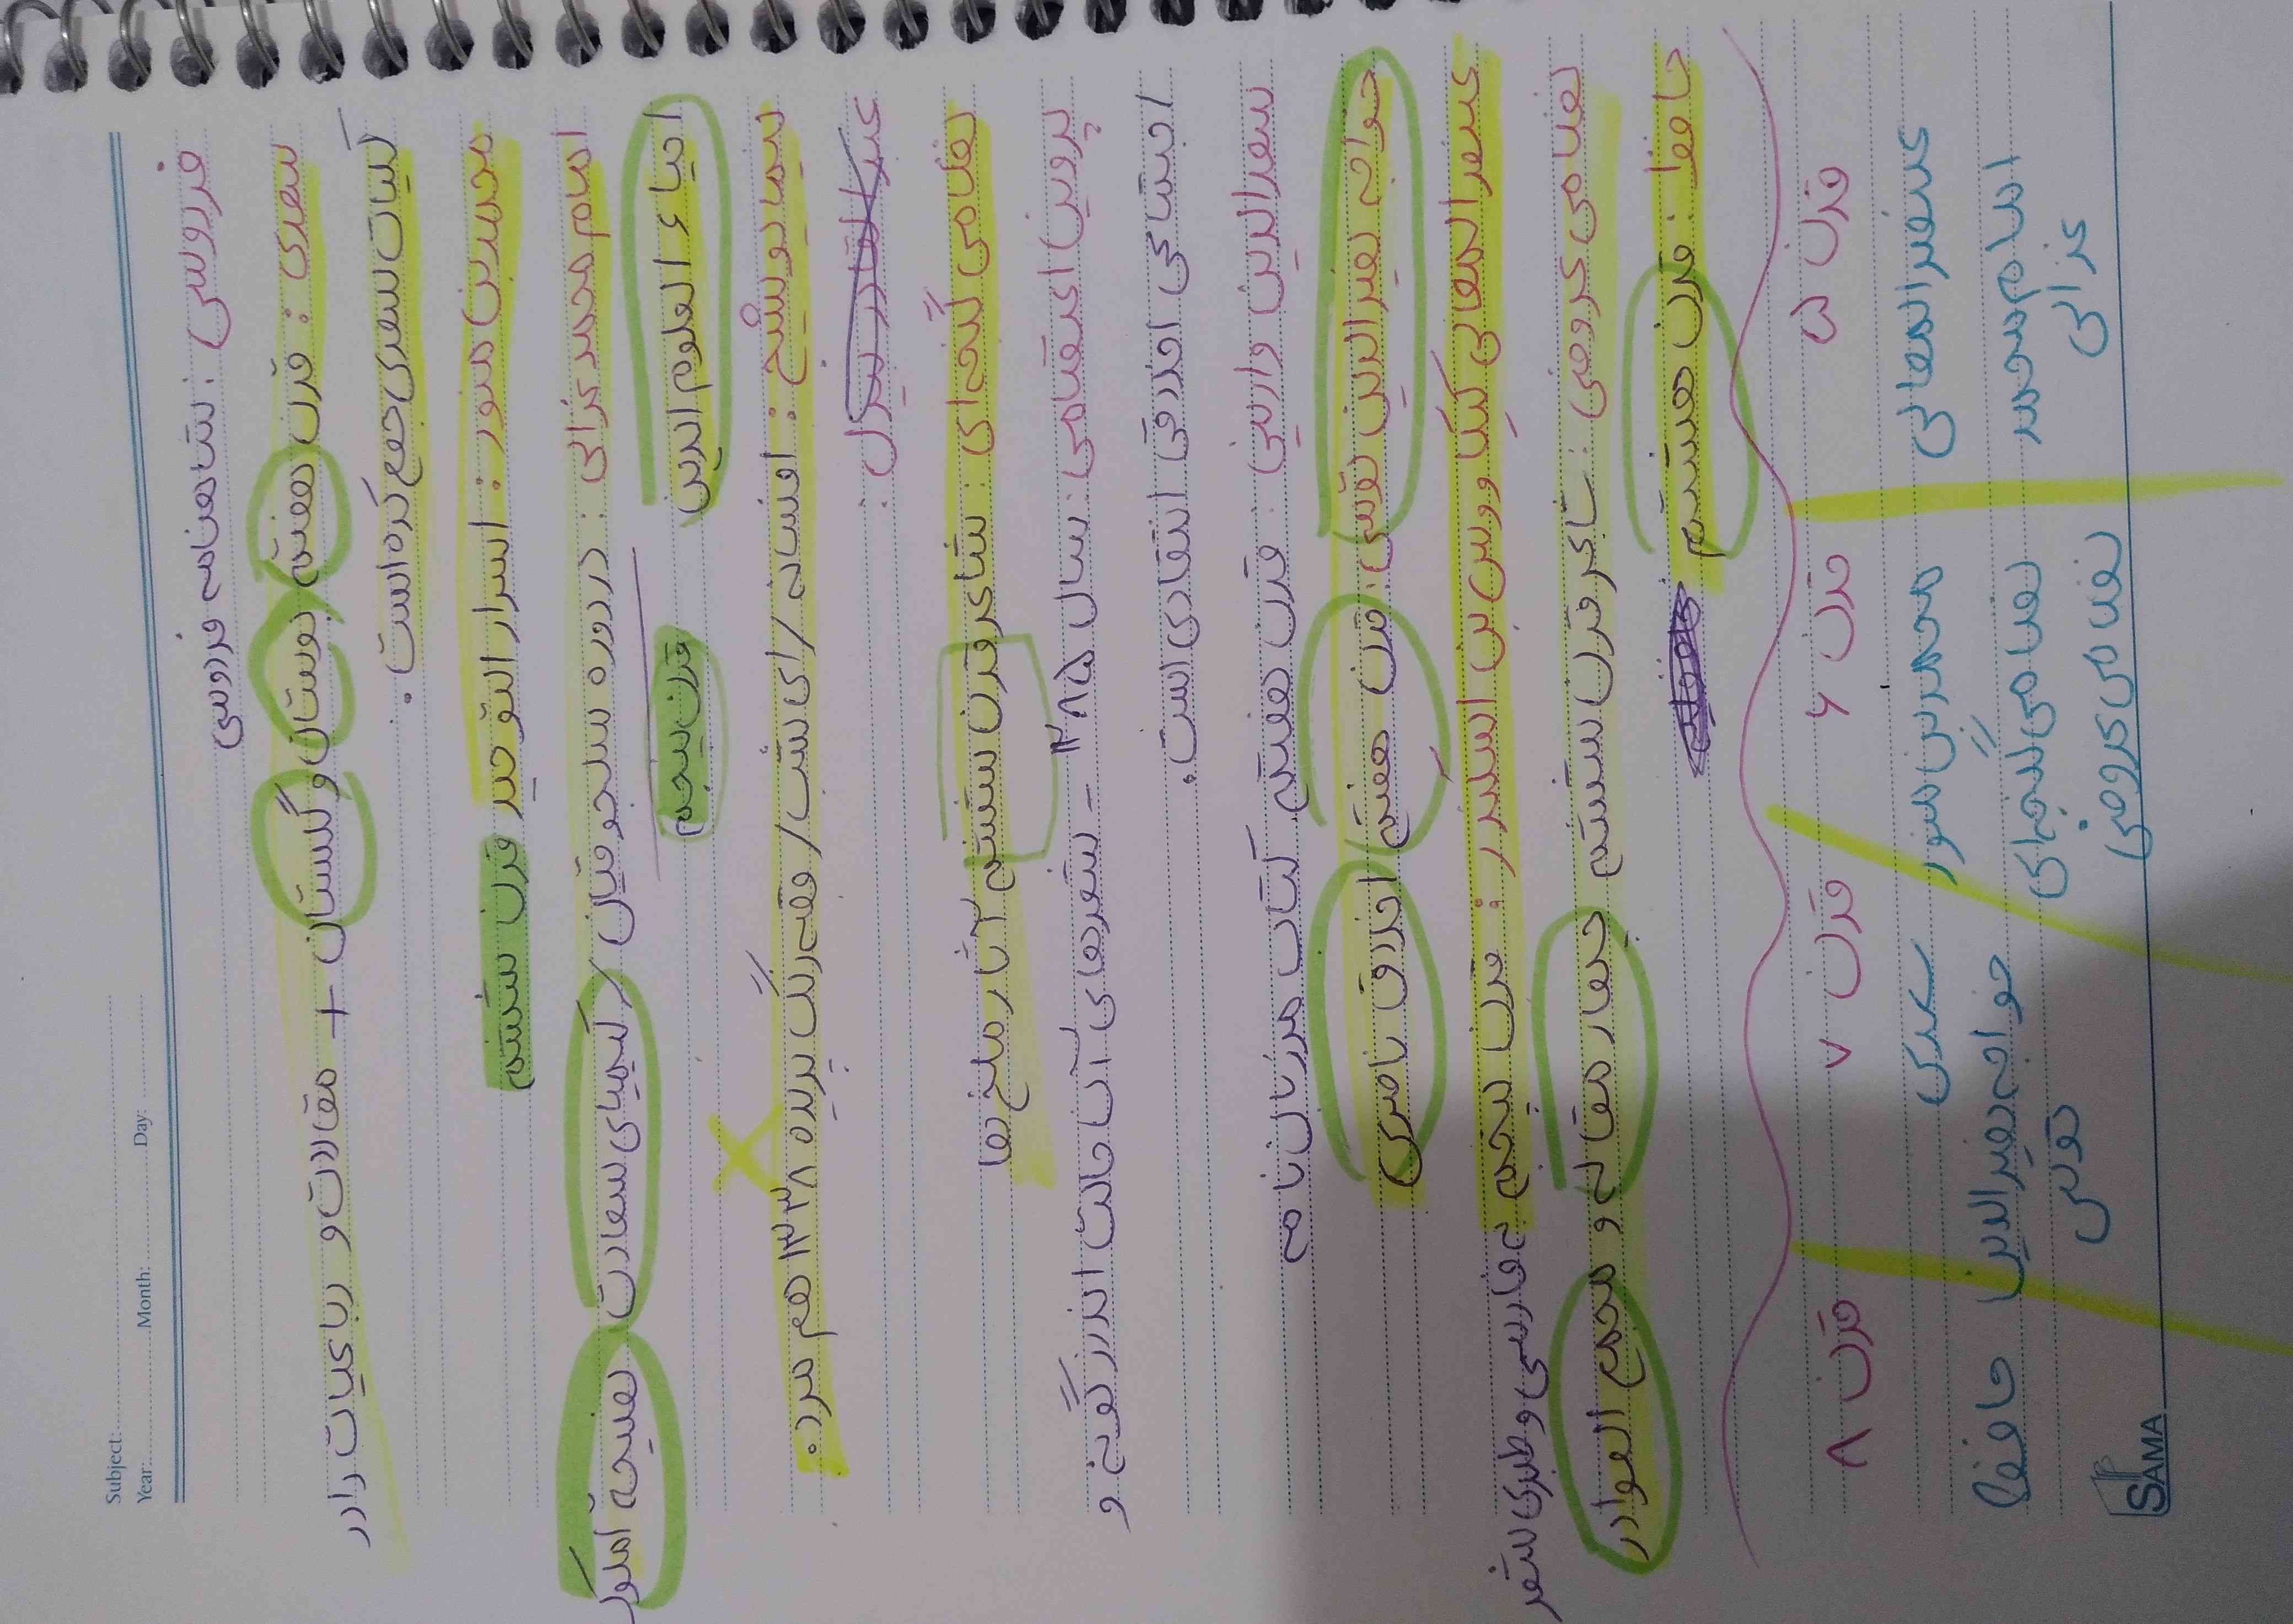 Subject:
Year: Month: Day:
فردوسی : شاهنامه فردوسی
سعدی : قرن هفتم / بوستان و گلستان + مقالات و رباعیات را در
کلیات سعدی جمع کرده است.
محمدبن منور : اسرار التوحید قرن ششم
امام محمد غزالی : در دوره سلجوقیان / کیمیای سعادت / نصیحة الملوک
احیاء العلوم الدین قرن پنجم
نیما یوشیج : افسانه / ای شب / قصه رنگ پریده ۱۳۳۸ هم مرد.
نظامی گنجه ای : شاعر قرن ششم آثار ملخ ها
پروین اعتصامی : سال ۱۲۸۵ - شعرهای آن حالت اندرز گونه و
اجتماعی اخلاقی انتقادی است.
سعدالدین وارینی : قرن هفتم کتاب مرزبان نامه
خواجه نصیرالدین توسی : قرن هفتم / اخلاق ناصری
عنصرالمعالی کیکاووس بن اسکندر : قرن پنجم به فارسی و طبری شعر
نظامی عروضی : شاعر قرن ششم چهار مقاله و مجمع النوادر
حافظ : قرن هشتم
قرن ۵ قرن ۶ قرن ۷ قرن ۸
عنصرالمعالی محمدبن منور سعدی حافظ
امام محمد نظامی گنجه ای خواجه نصیرالدین
غزالی نظامی عروضی توسی
SAMA